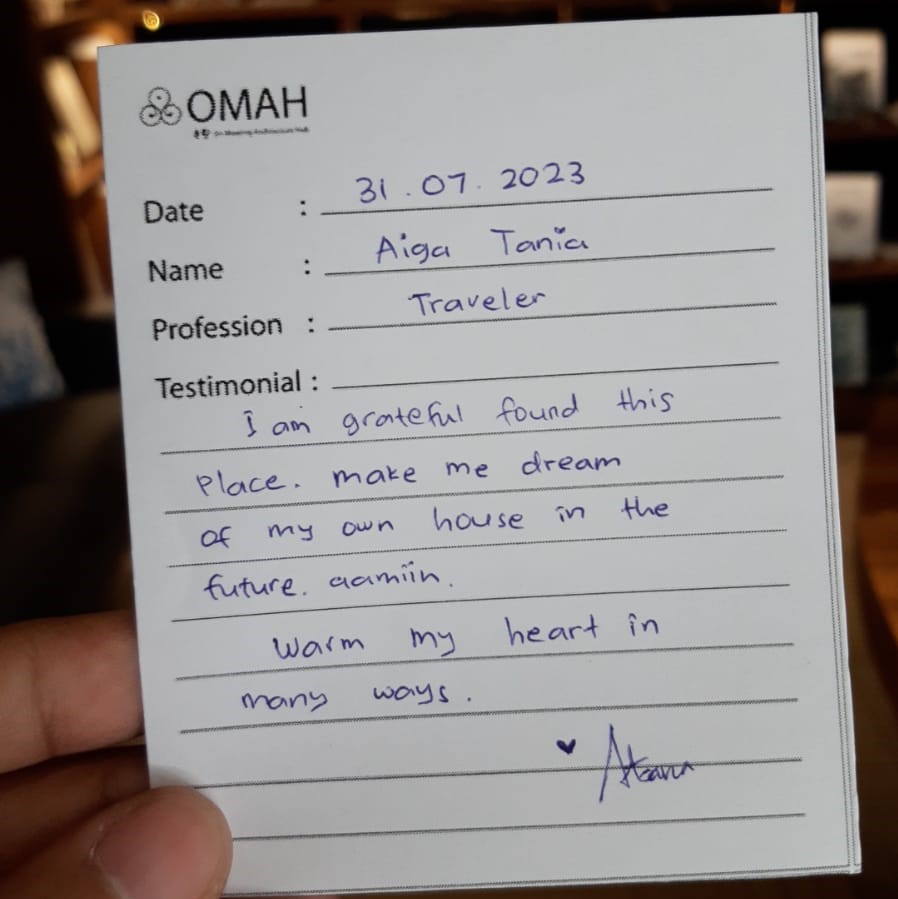 OMAH
Date : 31.07.2023
Name : Aiga Tania
Profession : Traveler
Testimonial :
I am grateful found this
Place. make me dream
of my own house in the
future. aamiin.
Warm my heart in
many ways.